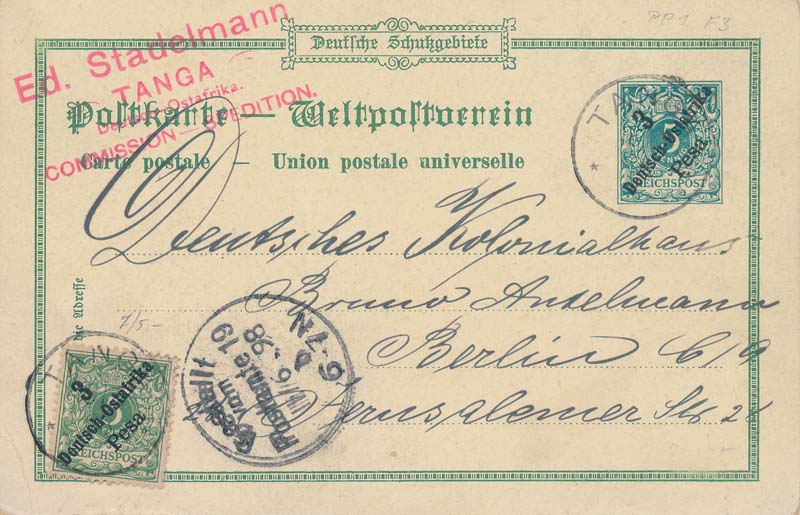 PP1 F3
Deutsche Schutzgebiete
Ed. Stadelmann
TANGA
Deutsch-Ostafrika.
COMMISSION — SPEDITION.
Postkarte — Weltpostverein
Carte postale — Union postale universelle
TANGA
3
Deutsch-Ostafrika
Pesa
5
REICHSPOST
Deutsches Kolonialhaus
Bruno Antelmann
Berlin C/19
Jerusalemer Str. 2
die Adresse
7/5.-
3
Deutsch-Ostafrika
Pesa
5
REICHSPOST
Bestellt
vom
Postamte 19
98
6-7N